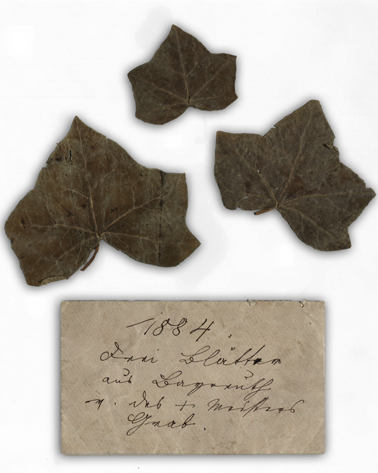 1884.
Drei Blätter
aus Bayreuth
v. des + Meisters
Grab.